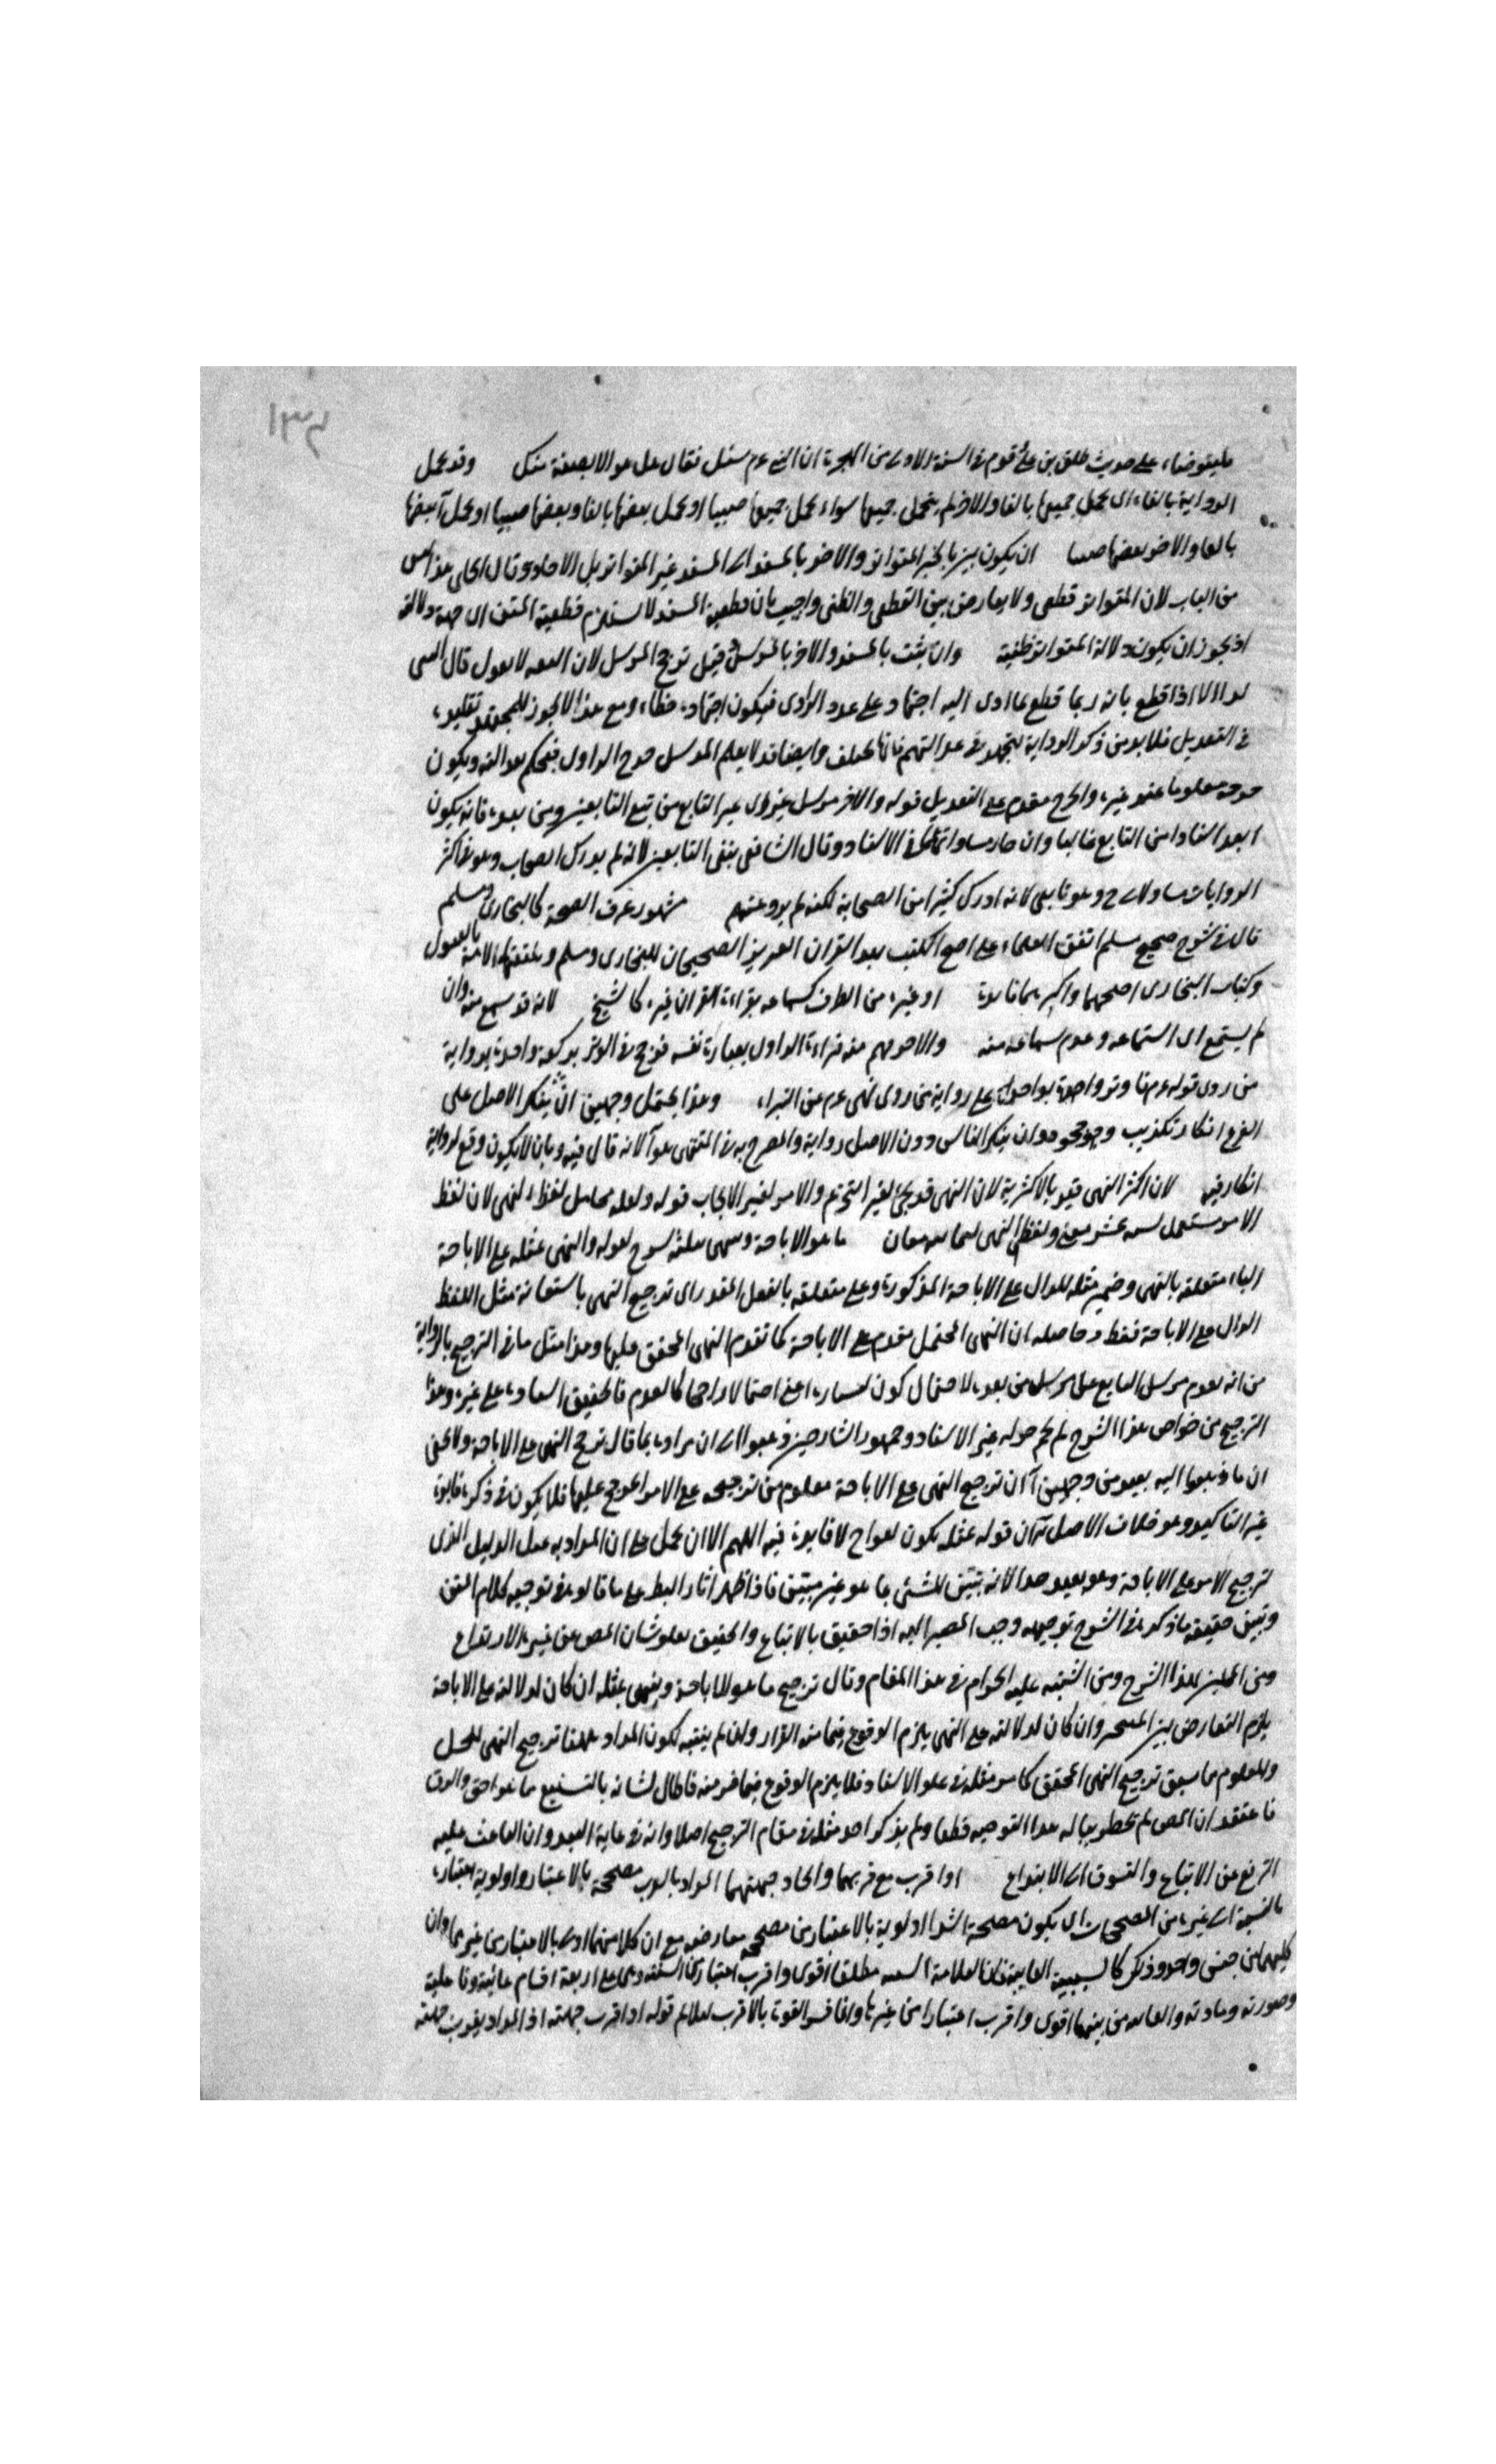 ١٣٤
فليتوضاء على حديث طلق بن على قدوم في السنة الاولى من الهجرة ان النبي عم سئل فقال هل هو الا بضعة منك وقد يحمل
الرواية بالغا اى يحمل جميعها بالغا والاخر لم يتحمل جميعها سواء يحمل جميعها صبيا او يحمل بعضها بالغا وبعضها صبيا او يحمل آ بعضها
بالغا والاخر بعضها صبيا ان يكون بين بالخبر المتواتر والاخر بالمسند اى المسند غير المتواتر بل الاحاد وقال الحلى هذا ليس
من الباب لان المتواتر قطعى ولا يعارض بين القطعى والظنى واجيب بان قطعية السند لا يستلزم قطعية المتن اى جهة دلالته
اذ يجوز ان يكون دلالة المتواتر ظنية وان يثبت بالمسند والاخر بالمرسل قيل ترجح المرسل لان الثقة لا يقول قال النبى
الا اذا قطع بانه ربما قطع بما ادى اليه اجتهاده على عدد الراوى فيكون اجتهاده خطاء ومع هذا لا يجوز للمجتهد تقليده
في التعديل فلا بد من ذكر الرواية ليجتهد في عدالتهم فانها يختلف وايضا قد لا يعلم المرسل جرح الراوى فيحكم بعدالته ويكون
جرحه معلوما عند غيره والجرح مقدم على التعديل قوله والاخر مرسل غيره اى غير التابع من تبع التابعين ومن بعده فانه يكون
ابعد اسنادا من التابع غالبا وان جاز مساواتهما في الاسناد وقال الشافعى ينفى التابعين لانه لم يدرك الصحاب وهو في اكثر
الروايات مساو لا ح وهو تابعى لانه ادرك كثيرا من الصحابة لكنه لم يرو عنهم مشهور عرف الصحة كالبخارى ومسلم
قال في شرح صحيح مسلم اتفق العلماء على اصح الكتب بعد القران العزيز الصحيحان للبخارى ومسلم وتلقتهما الامة بالقبول
وكتاب البخارى اصحهما واكبرهما فايدة او غيره من الطرف كسماعه بقراءة القران غيره كالشيخ لانه قد سمع منه وان
لم يستمع اى استماعه وعدم سماعه منه والاخر يهم منه قراءة الراوى بعبارة نفسه فرجح في الوتر بركعة واحدة برواية
من روى قوله عم وتر واحدة بواحدة على رواية من روى نهى عم عن البتراء وهذا يحتمل وجهين ان ينكر الاصل على
الفرع انكار تكذيب وجحود وان ينكر الناس دون الاصل رواية والمصرح به في المنتهى هو آ لانه قال فيه وبان لا يكون وقع لرواية
انكار فيه لان اكثر النهى قيد بالاكثرية لان النهى قد يجئ لغير التحريم والامر لغير الايجاب قوله ولقلة محامل لفظ النهى لان لفظ
الامر مستعمل لسته عشر معنى ولفظ النهى لثمانية معان ما هو الاباحة ونهى بمثله شرح لقوله والنهى بمثله على الاباحة
الباء متعلقة بالنهى وضمير مثله للدال على الاباحة المذكورة وعلى متعلقة بالفعل المقدر اى ترجيح النهى باستعانة مثل اللفظ
الدال على الاباحة فقط وحاصله ان النهى المحتمل مقدم على الاباحة كما تقدم النهى المحقق عليها وهذا مثل ما في الترجيح بالرواية
من انه تقدم مرسل التابع على مرسل من بعده لاحتمال كون اعنى احتمالا راجحا كالعدم فالتحقيق على غيره وهذا
الترجيح من خواص هذا الشرح لم يحم حوله غير الاستاد وجمهور الشارحين ذهبوا الى ان مراده بما قال ترجح النهى على الاباحة ولا يخفى
ان ما ذهبوا اليه بعيد من وجهين آ ان ترجيح النهى على الاباحة معلوم من ترجيحه على الامر المرجح عليها فلا يكون في ذكره فايدة
غير التاكيد وهو خلاف الاصل ان قوله بمثله يكون لا فايدة فيه اللهم الا ان يحمل على ان المراد به مثل الدليل الذى
لترجيح الامر على الاباحة وهو بعيد جدا لانه تبيين للشئ بما هو غير مبين فاذا ظهر اثار البط على ما قالوه في توجيه كلام المتن
وتبين حقيقة ما ذكره في الشرح توجيهه وجب المصير اليه اذا حقيق بالاتباع والحقيق بعلو شان المص عن غيره الارتفاع
ومن الملين لهذا الشرح ومن اشتبه عليه الحرام في هذا المقام وقال ترجيح ما هو للاباحة ونهى بمثله ان كان لدلالته على الاباحة
يلزم التعارض بين وان كان لدلالته على النهى يلزم الوقوع فيما منه الفرار ولان لم يتنبه لكون المراد ههنا ترجيح النهى المحتمل
والمعلوم مما سبق ترجيح النهى المحقق كما مر مثله في علو الاسناد فلا يلزم الوقوع فيما فر منه فاطال لسانه بالتشنيع ما هو احق واليق
فاعتقد ان المص لم يخطر بباله هذا التوجيه قطعا ولم يذكر احد مثله في مقام الترجيح اصلا وانه في غاية البعد وان الباعث عليه
الترفع عن الاتباع والتسوق الى الابتداع او اقرب مع قربهما واتحاد جهتهما المراد بالقرب مصححة بالاعتبار واولوية اعتباره
بالنسبة الى غيره من المصححات اى يكون مصححه اشد اولوية بالاعتبار من مصحح معارضه مع ان كلا منهما اولى بالاعتبار من غيرهما وان
كليهما من جنس واحد وذكر كالسببية الغايية فان العلامة مطلقا اقوى واقرب اعتبارا وهى على اربعة اقسام غائية وفاعلية
وصورته ومادته والغايه من بينها اقوى واقرب اعتبارا من غيرها وانما فسر القوة بالاقرب ليلائم قوله او اقرب جهته اذ المراد بقرب جهته